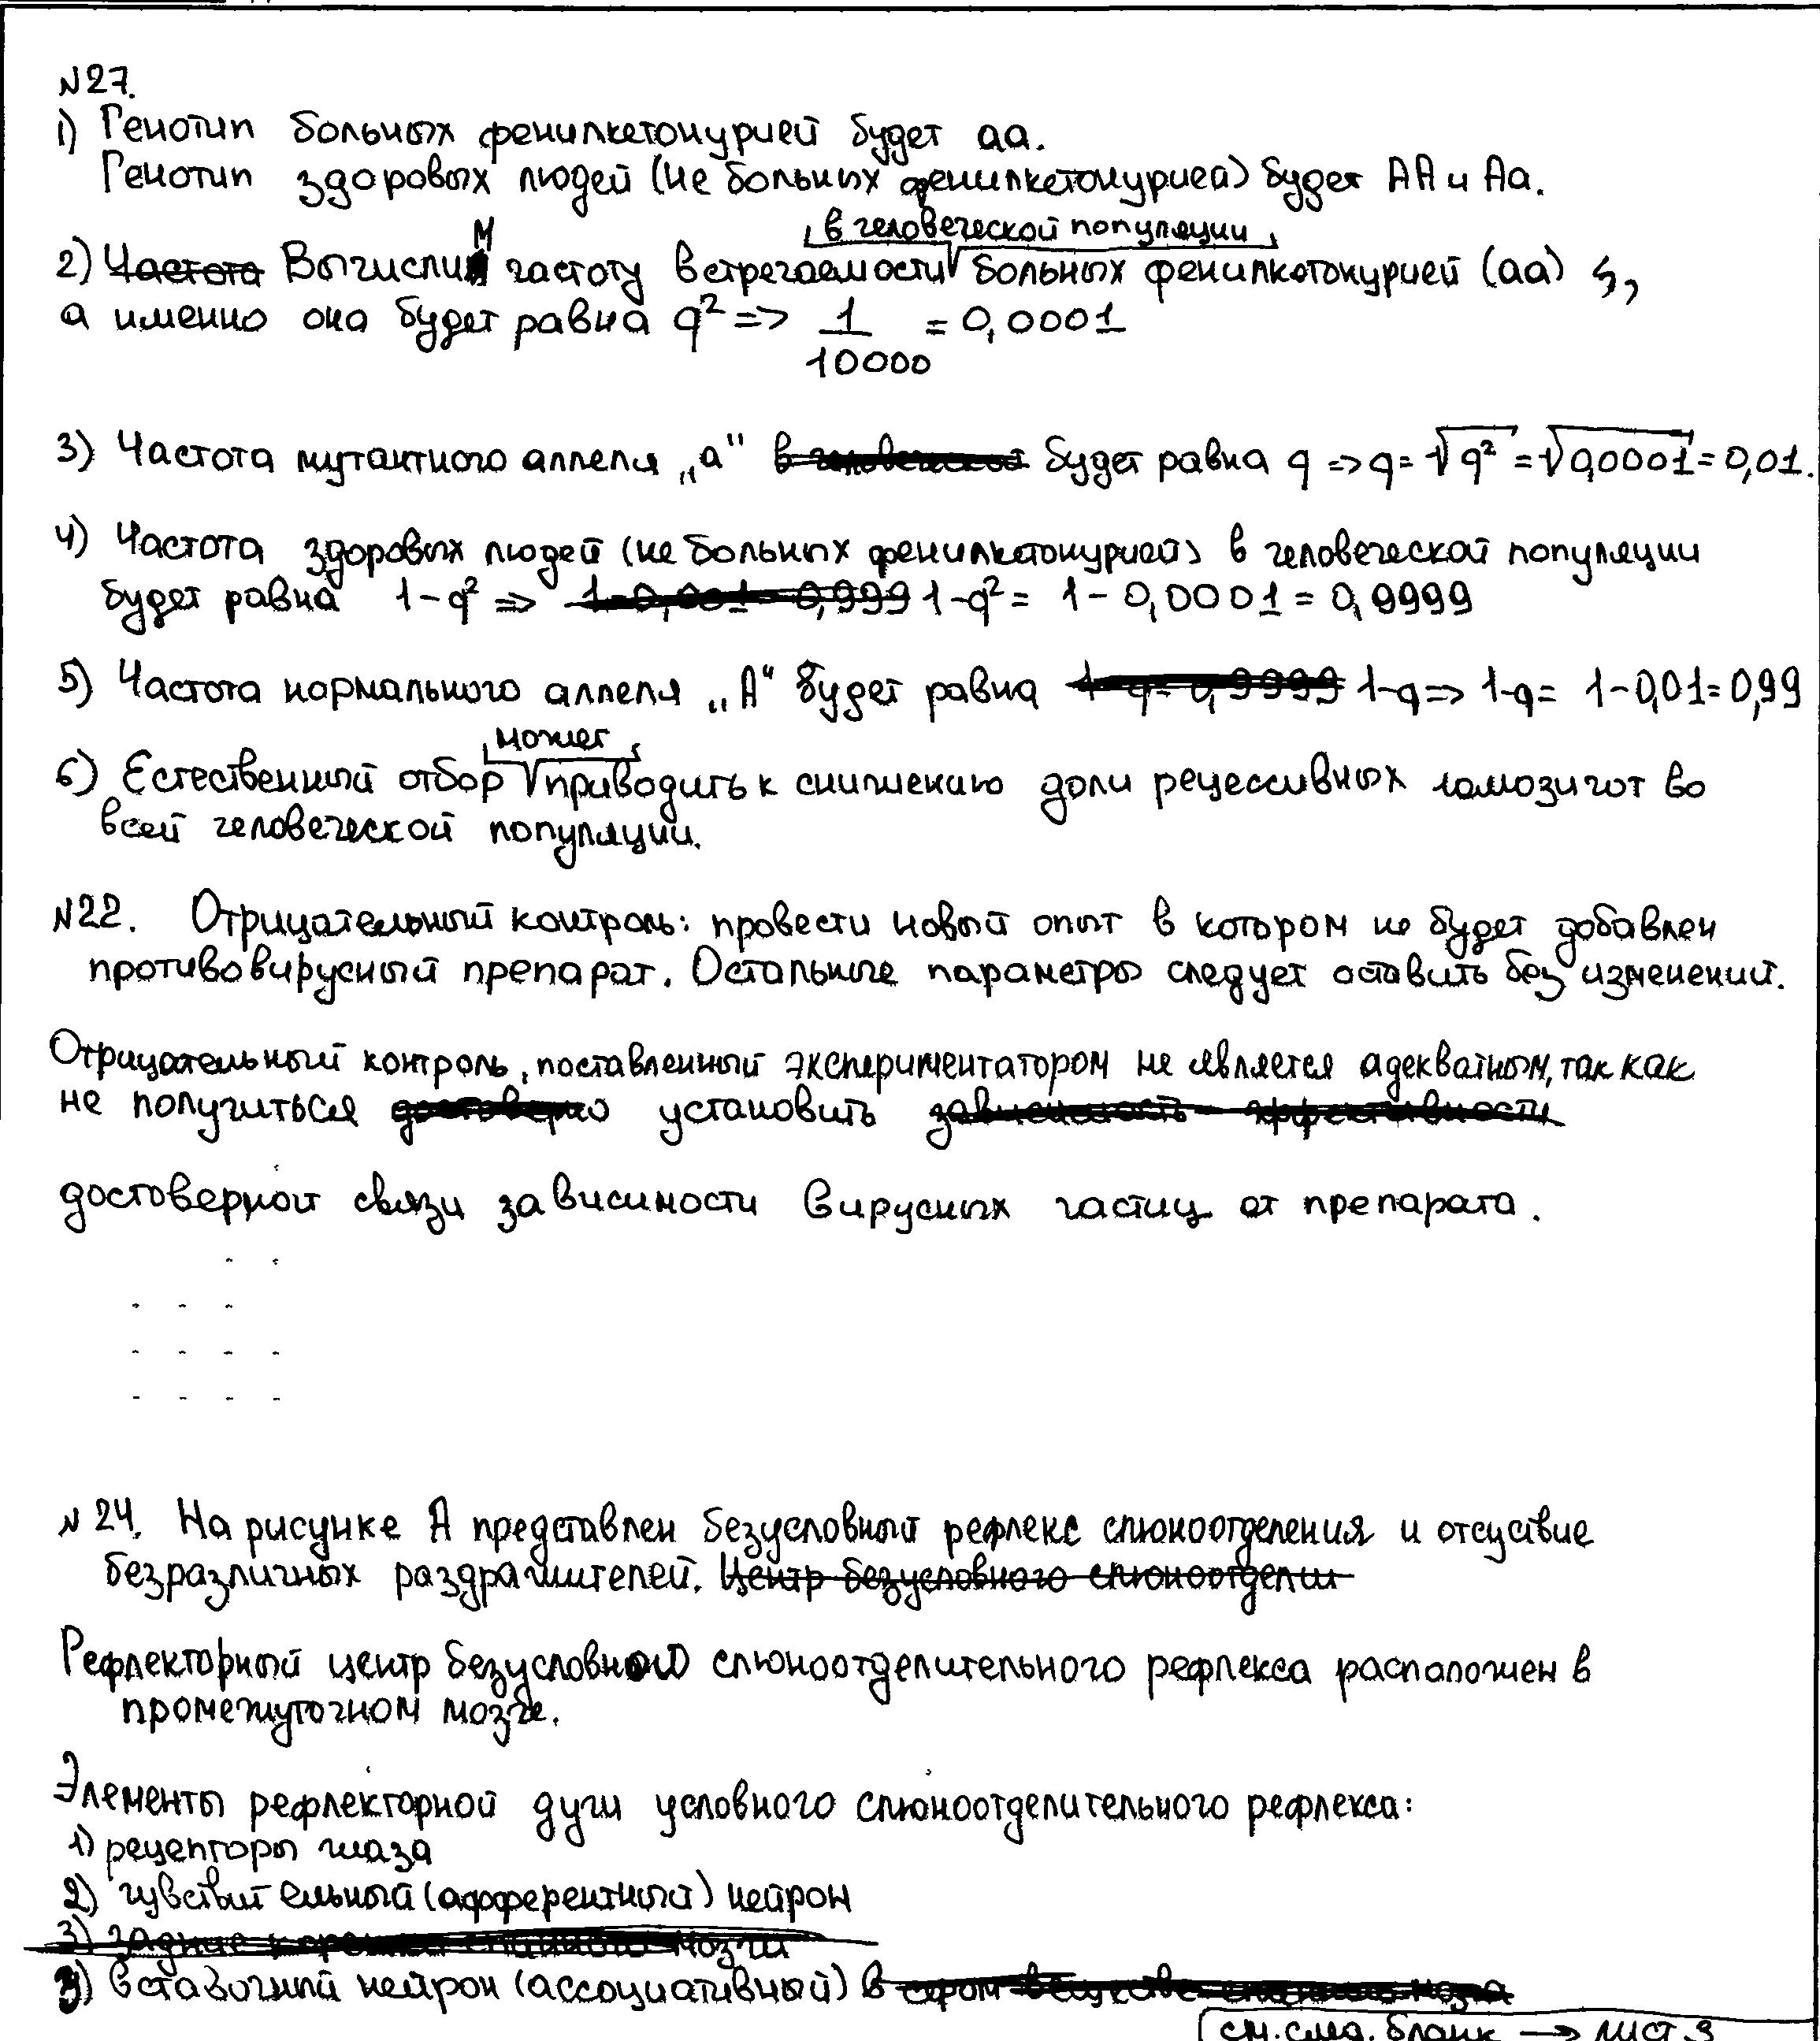 №27.
1) Генотип больных фенилкетонурией будет аа.
Генотип здоровых людей (не больных фенилкетонурией) будет АА и Аа.
в человеческой популяции
2) Частота Вычислим частоту встречаемости больных фенилкетонурией (аа),
а именно она будет равна q² => 1/10000 = 0,0001
3) Частота мутантного аллеля „а" в человеческой будет равна q => q = √q² = √0,0001 = 0,01.
4) Частота здоровых людей (не больных фенилкетонурией) в человеческой популяции
будет равна 1-q² => 1-0,001=0,999 1-q² = 1-0,0001 = 0,9999
5) Частота нормального аллеля „А" будет равна 1-q=0,9999 1-q => 1-q = 1-0,01=0,99
может
6) Естественный отбор приводить к снижению доли рецессивных гомозигот во
всей человеческой популяции.
№22. Отрицательный контроль: провести новый опыт в котором не будет добавлен
противовирусный препарат. Остальные параметры следует оставить без изменений.
Отрицательный контроль, поставленный экспериментатором не является адекватным, так как
не получиться достоверно установить зависимость эффективности
достоверной связи зависимости вирусных частиц от препарата.
№24. На рисунке А представлен безусловный рефлекс слюноотделения и отсуствие
безразличных раздражителей. Центр безусловного слюноотделии
Рефлекторный центр безусловного слюноотделительного рефлекса расположен в
промежуточном мозге.
Элементы рефлекторной дуги условного слюноотделительного рефлекса:
1) рецепторы глаза
2) чувствительный (афферентный) нейрон
3) задние корешки спинного мозга
3) вставочный нейрон (ассоциативный) в сером веществе спинного мозга
см. след. бланк → лист 3